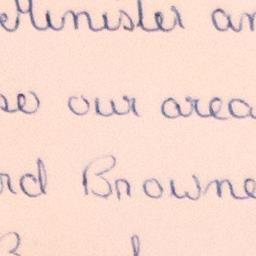 Minister an
so our area
rd Browne